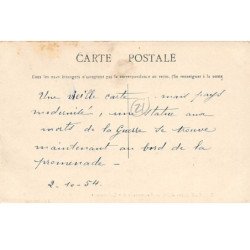 CARTE POSTALE
Tous les pays étrangers n'acceptent pas la correspondance au recto. (Se renseigner à la poste)
Une vieille carte, mais pays
modernité, une statue aux
morts de la Guerre se trouve
maintenant au bord de la
promenade -
2-10-54